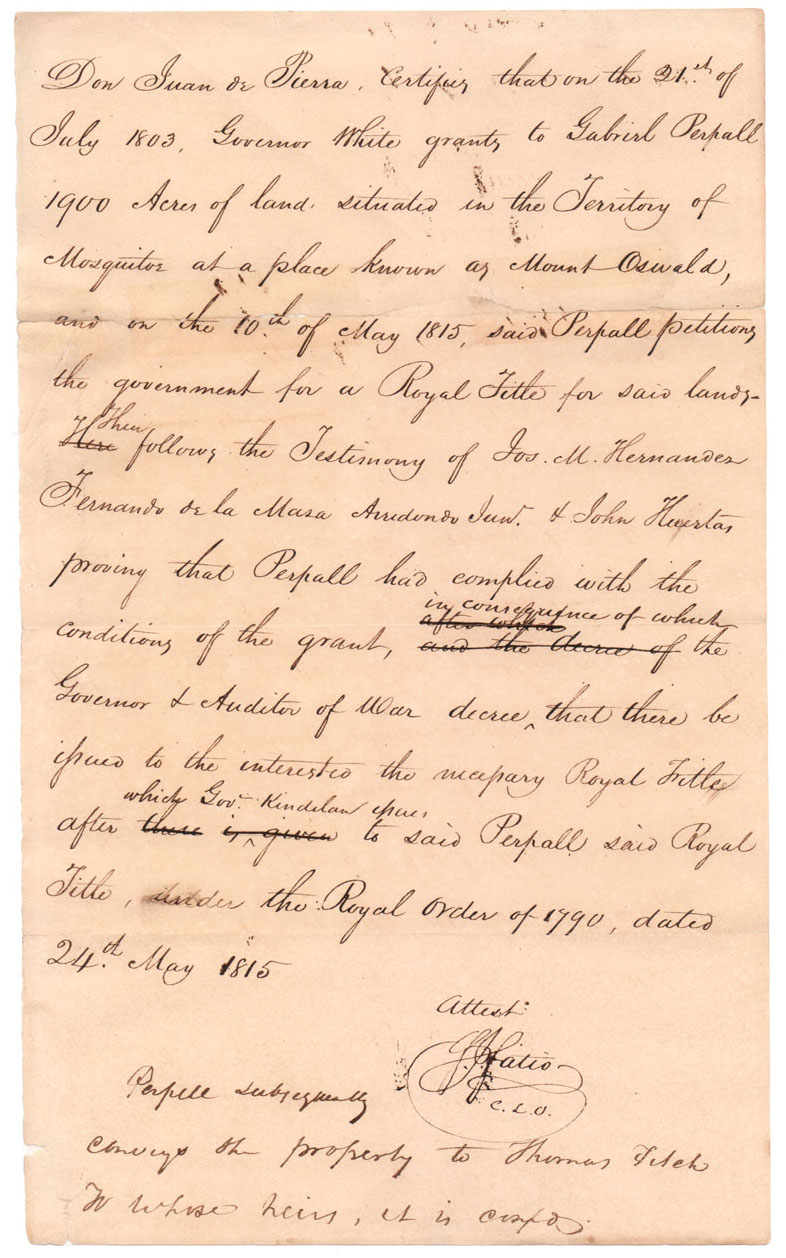 Don Juan de Pierra, Certifies that on the 21st. of
July 1803, Governor White grants to Gabriel Perpall
1900 Acres of land situated in the Territory of
Mosquitos at a place known as Mount Oswald,
and on the 10th. of May 1815, said Perpall petitions
the government for a Royal Title for said lands-
Then
Here follows the Testimony of Jos. M. Hernandez
Fernando de la Maza Arredondo Junr. & John Huertas
proving that Perpall had complied with the
in consequence of which
after which
conditions of the grant, and the decree of the
Governor & Auditor of War decree ^ that there be
issued to the interested the necessary Royal Title
which Govr. Kindelan issues
after there is ^ given to said Perpall said Royal
Title, under the Royal Order of 1790, dated
24th. May 1815
Attest
F. J. Fatio
C. L. O.
Perpall subsequently
conveys the property to Thomas Fitch
To whose heirs, it is confd.